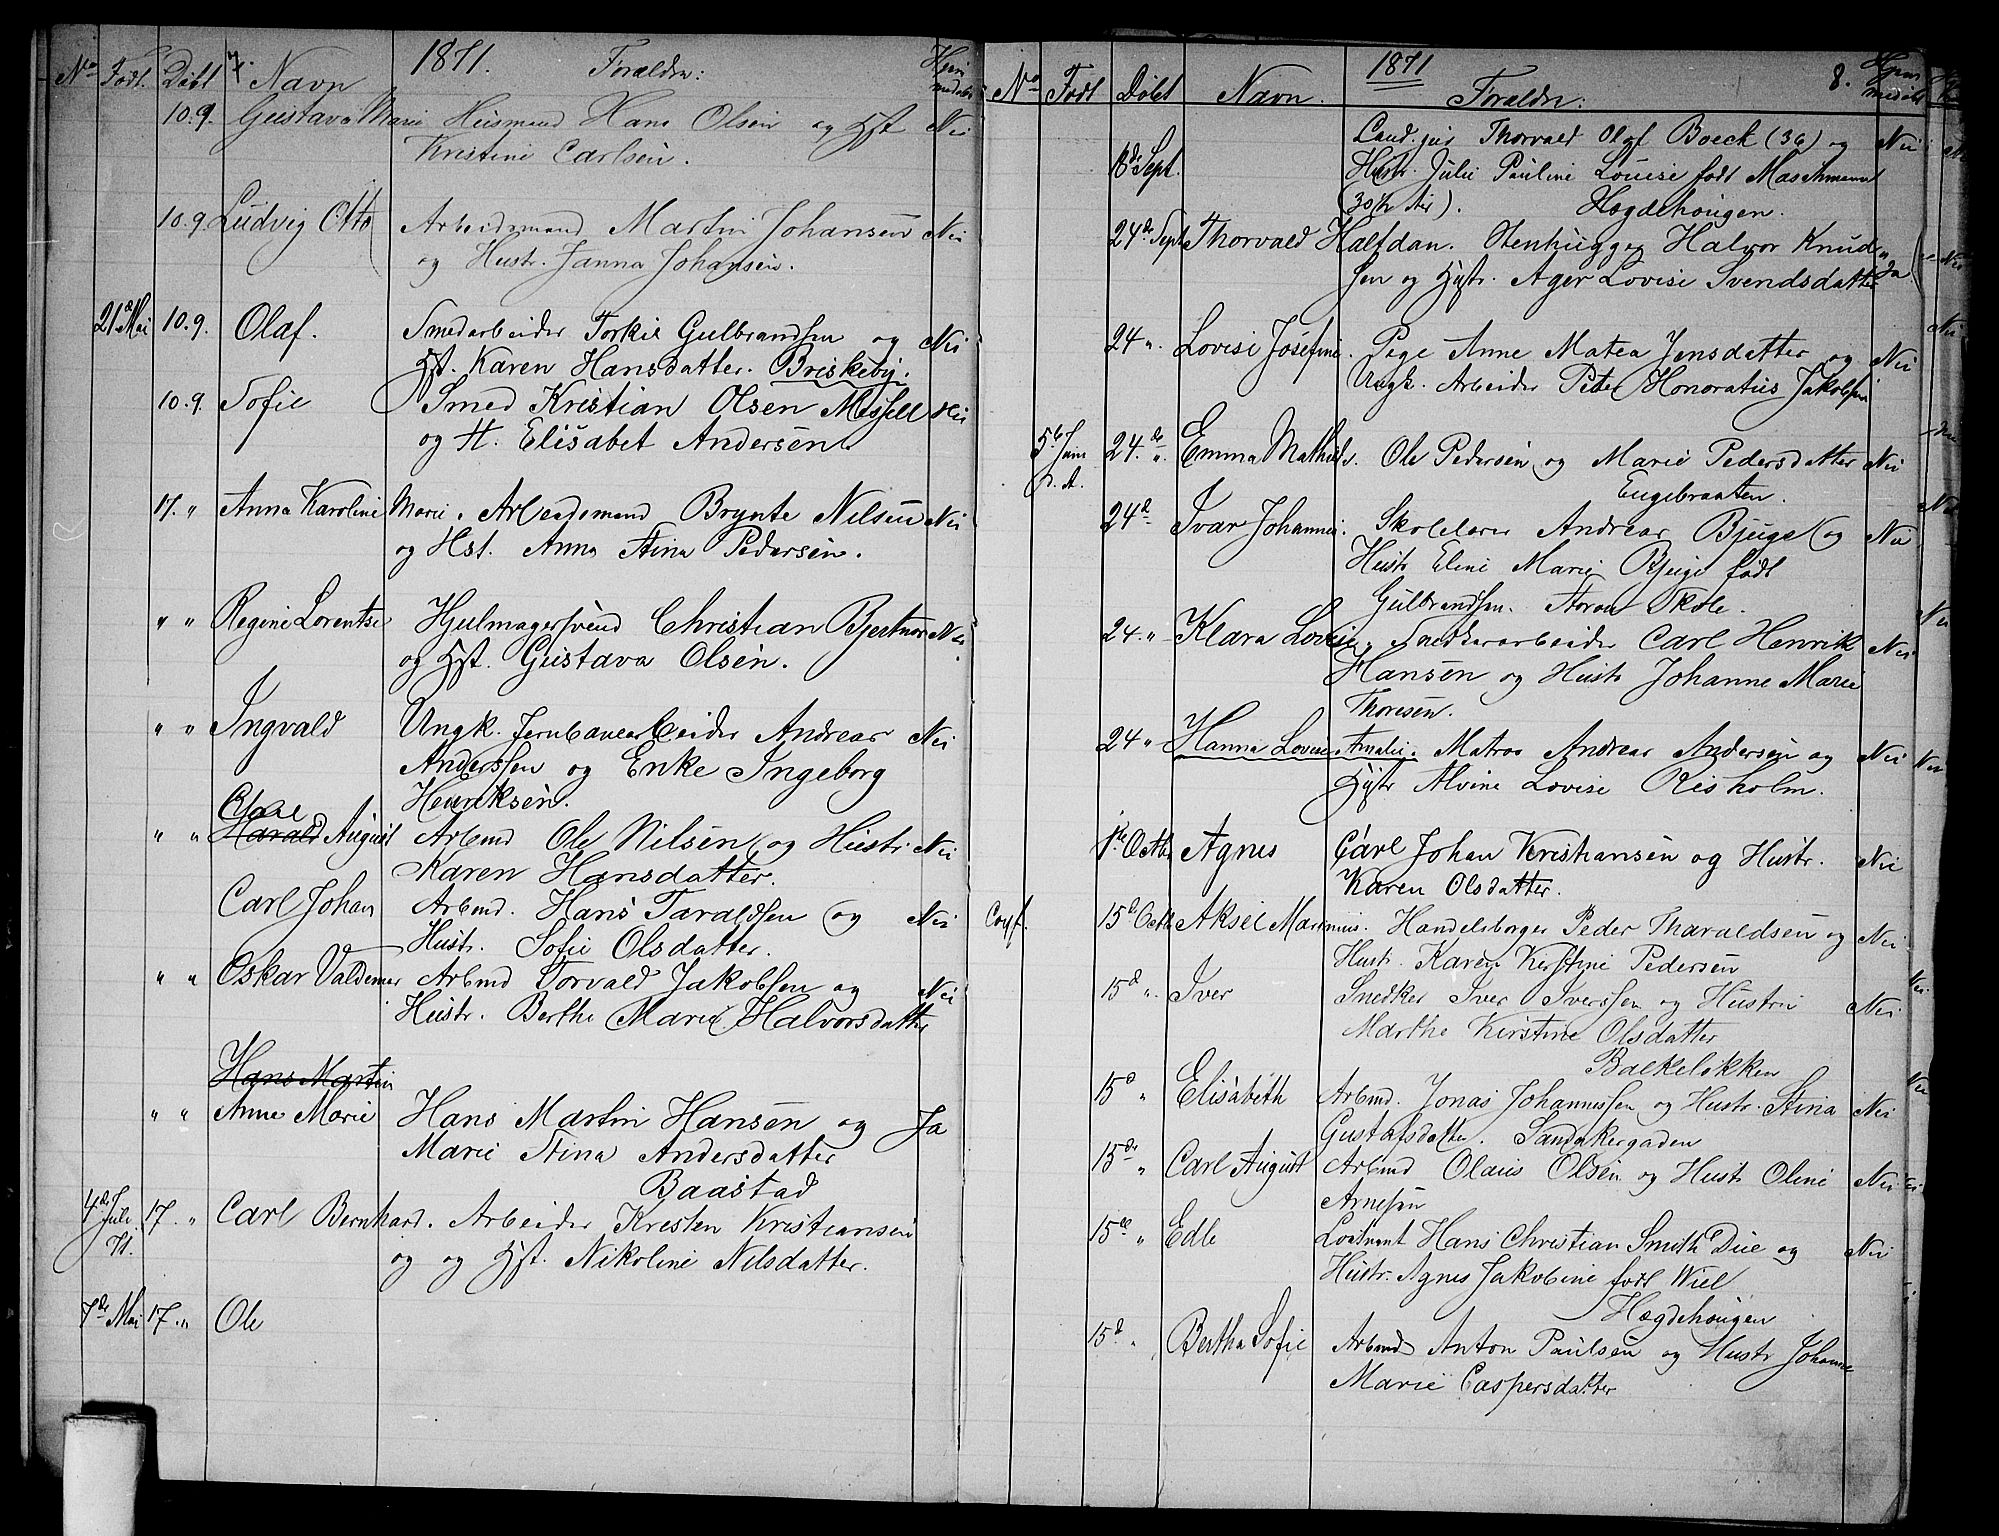 7. 1871.
No Født. Døbt Navn Forældre: Hjemmedøbt
10.9. Gustava Marie Husmand Hans Olsen og Hst. Nei
Kristine Carlsen.
10.9 Ludvig Otto Arbeidsmand Martin Johansen Nei
og Hustr. Janna Johansen.
21de Mai 10.9. Olaf. Smedarbeider Torkil Gulbrandsen og Nei
Hst. Karen Hansdatter. Briskeby.
10.9. Sofie Smed Kristian Olsen Messell Nei
og H. Elisabet Andersen
17. " Anna Karoline Marie. Arbeidsmand Brynte Nilsen Nei
og Hst. Anna Stina Pedersen.
" " Regine Lorentse Hjulmagersvend Christian Bjertnæs Nei
og Hst. Gustava Olsen.
" " Ingvald Ungk. Jernbanearbeider Andreas Nei
Anderssen og Enke Ingeborg
Henriksen.
" " Harald August Arbmd Ole Nilsen og Hustr. Nei
Karen Hansdatter.
Carl Johan Arbmd. Hans Taraldsen og Nei
Hustr. Sofie Olsdatter.
" " Oskar Valdemar Arbmd Torvald Jakobsen og Nei
Hustr. Berthe Marie Halvorsdatter
Hans Martin
" " Anne Marie Hans Martin Hansen og Ja
Marie Stina Andersdatter
Baastad
4de Juli 71. 17. " Carl Bernhard. Arbeider Kresten Kristiansen
og og Hst. Nikoline Nilsdatter.
7de Mai 17. " Ole
1871 8.
No Født Døbt Navn. Forældre: Hjemmedøbt
Cand. jur Thorvald Olaf Boeck (36) og Nei
Sept. Hustr. Julie Pauline Louise født Maschmann
(30½ Aar). Hægdehougen.
24de Sept. Thorvald Halfdan. Stenhugger Halvor Knud-
sen og Hustr. Ager Lovise Svendsdatter Ja
24 " Lovise Josefine. Pige Anne Matea Jensdatter og Nei
Ungk. Arbeider Peter Honoratius Jakobsen
5te Juni d. A. 24de " Emma Mathilde. Ole Pedersen og Marie Pedersdatter Nei
Engebraaten.
24de Ivar Johannes. Skolelærer Andreas Bjuge og Nei
Hustr Eline Marie Bjuge født
Gulbrandsen. Skole.
24. " Klara Lovise. Snedkerarbeider Carl Henrik Nei
Hansen og Hustr Johanne Marie
Thoresen.
24 " Hanna Lovise Amalie. Matros Andreas Andersen og Nei
Hustr Alvine Lovise Risholm.
1ste Octbr Agnes Carl Johan Kristiansen og Hustr. Nei
Karen Olsdatter.
Conf. 15de Octbr Aksel Marinius. Handelsborger Peder Tharaldsen og Nei
Hustr. Karen Kerstine Pedersen
15d " Iver Snedker Iver Iverssen og Hustru Nei
Marthe Kirstine Olsdatter
Bakkeløkken
15d " Elisabeth Arbmd. Jonas Johannessen og Hustr. Stina Nei
Gustafsdatter. Sandakergaden
15de " Carl August Arbmd Olaus Olsen og Hustr Oline Nei
Arnesen
15de " Edle Loitnant Hans Christian Smith Due og Nei
Hustr. Agnes Jakobine født Wiel
Hægdehougen
15d " Bertha Sofie Arbmd Anton Paulsen og Hustr Johanne
Marie Caspersdatter